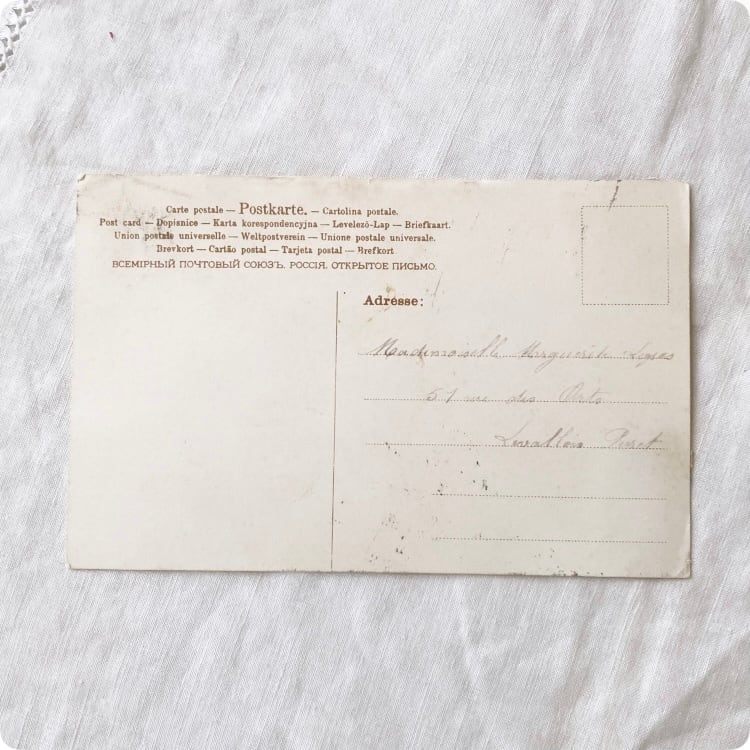 Carte postale — Postkarte. — Cartolina postale.
Post card — Dopisnice — Karta korespondencyjna — Levelező-Lap — Briefkaart.
Union postale universelle — Weltpostverein — Unione postale universale.
Brevkort — Cartão postal — Tarjeta postal — Brefkort
ВСЕМІРНЫЙ ПОЧТОВЫЙ СОЮЗЪ. РОССІЯ. ОТКРЫТОЕ ПИСЬМО.
Adresse:
Mademoiselle Marguerite
51 rue des Arts
Levallois Perret